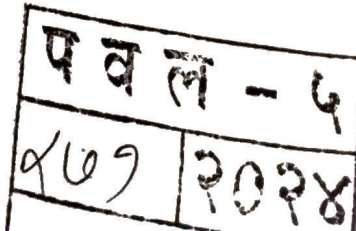 पवल - ५
४७१ २०२४